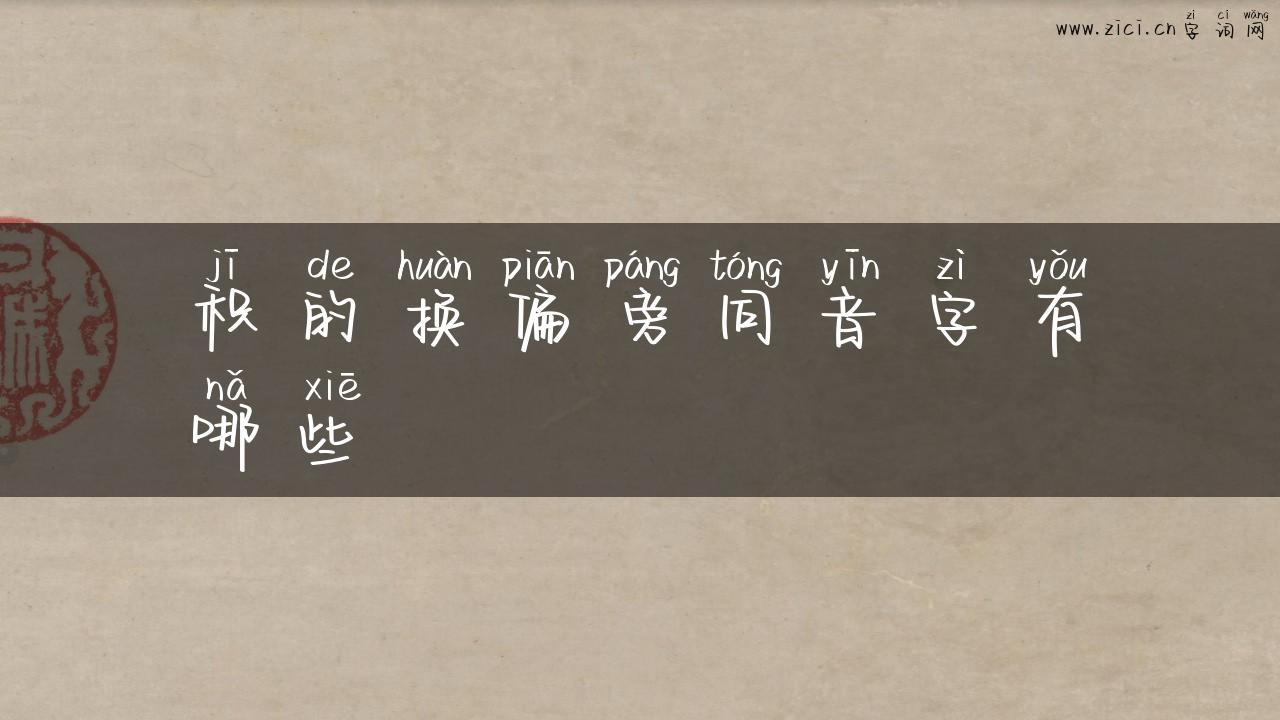 zì cí wǎng
www.zici.cn字词网
jī de huàn piān páng tóng yīn zì yǒu
积的换偏旁同音字有
nǎ xiē
哪些